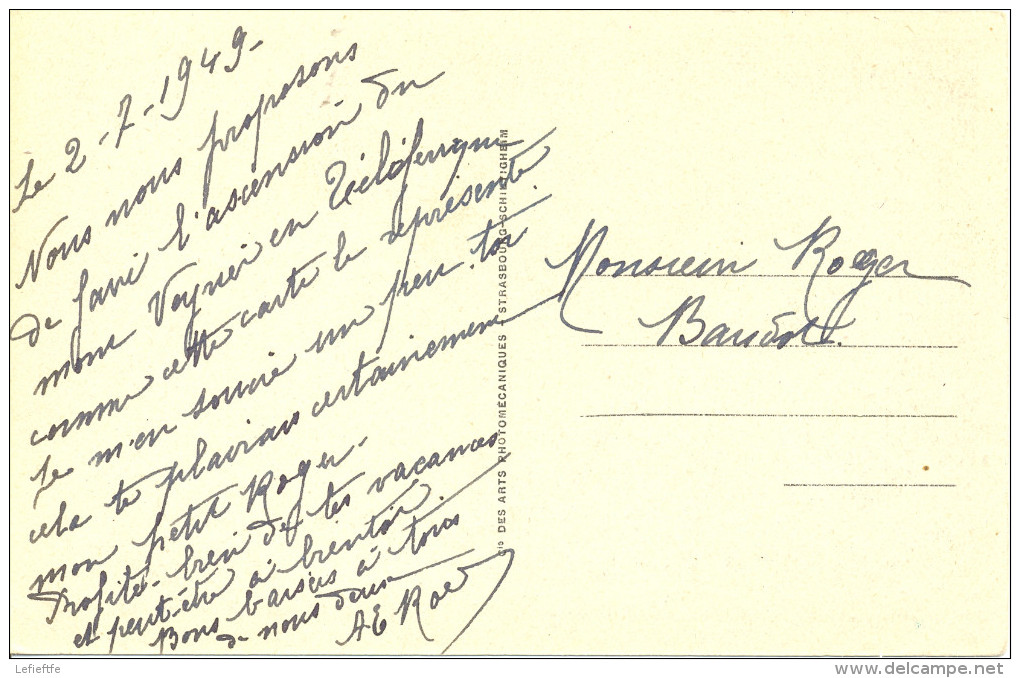 Le 2-7-1949-
Nous nous proposons
de faire l'ascension du
mont Veyrier en Téléferique
comme cette carte le représente
Je m'en soucie un peu. toi
cela te plairais certainement
mon petit Roger.
Profite-bien de tes vacances
et peut-être à bientôt.
Bons baisers à tous
de nous deux
AE
Monsieur Roger
Baudot.
Cie DES ARTS PHOTOMÉCANIQUES STRASBOURG-SCHILTIGHEIM
Lefieftfe
delcampe.net